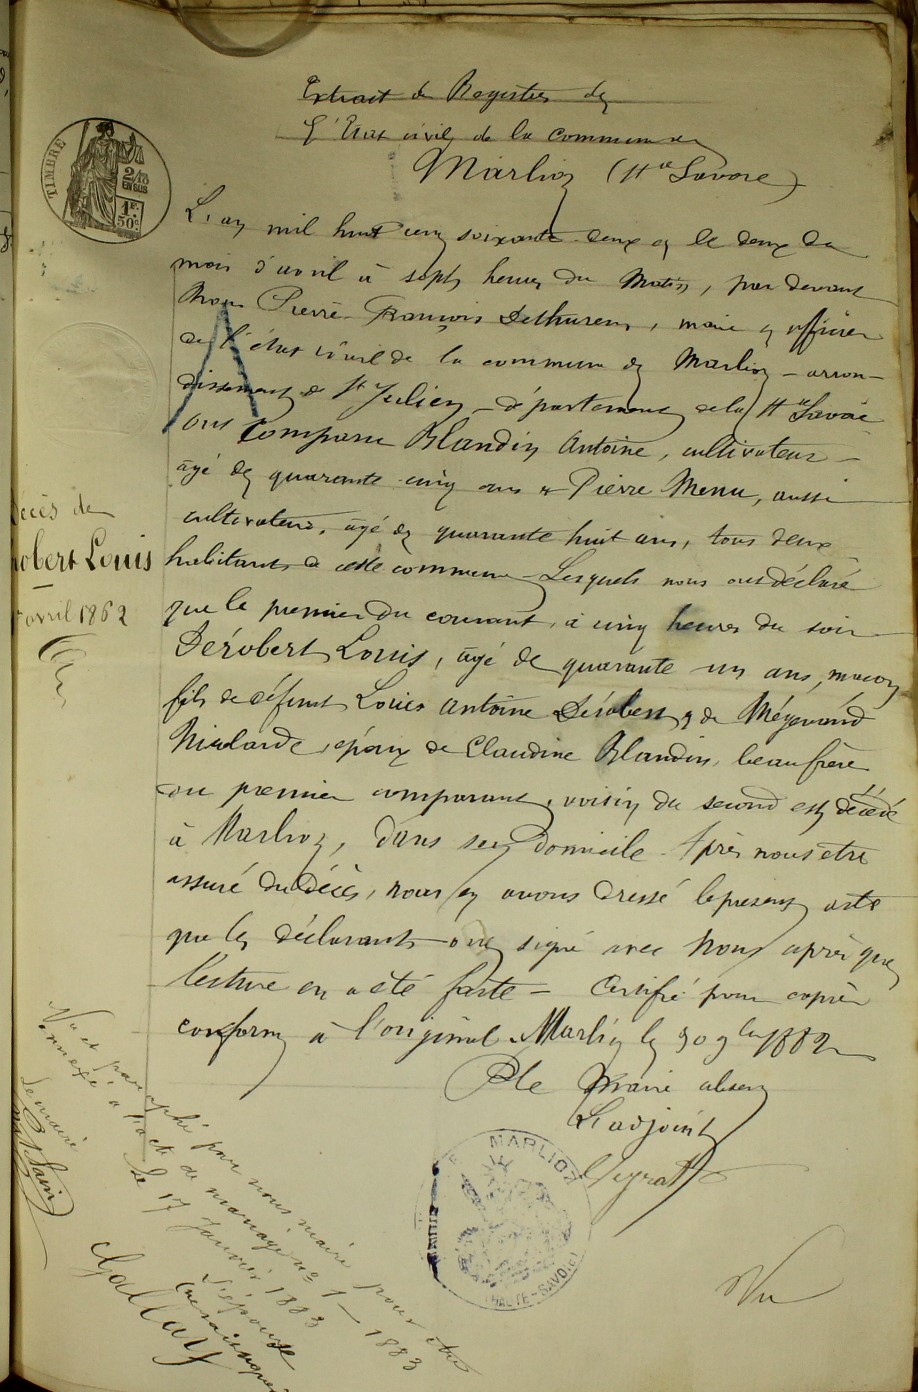 Extrait des Registres de
l'Etat civil de la commune de
Marlioz (Hte Savoie)
TIMBRE
2/10
EN SUS
1F.
50c.
L'an mil huit cent soixante-deux et le deux du
mois d'avril à sept heures du matin, par devant
Nous Pierre-François Dethurens, maire et officier
de l'état civil de la commune de Marlioz - arron-
dissement de St Julien - département de la Hte Savoie
ont comparu Blandin Antoine, cultivateur
âgé de quarante cinq ans et Pierre Menu, aussi
cultivateur, âgé de quarante huit ans, tous deux
habitants de cette commune - Lesquels nous ont déclaré
que le premier du courant, à cinq heures du soir
Dérobert Louis, âgé de quarante un ans, maçon
fils de défunt Louis Antoine Dérobert et de Mégevand
Nicolarde, époux de Claudine Blandin, beau frère
au premier comparant, voisin du second est décédé
à Marlioz, dans son domicile. Après nous être
assuré du décès, nous en avons dressé le présent acte
que les déclarants ont signé avec Nous après que
lecture en a été faite = Certifié pour copie
conforme à l'original. Marlioz le 30 9bre 1882
Ple Maire absent
L'adjoint
MARLIOZ
(HAUTE-SAVOIE)
Vu
Décès de
Dérobert Louis
avril 1862
Vu et paraphé par nous maire pour être
annexé à l'acte de mariage no 1 - 1883
Le 17 Janvier 1883
Le maire
L'épouse
Gallay